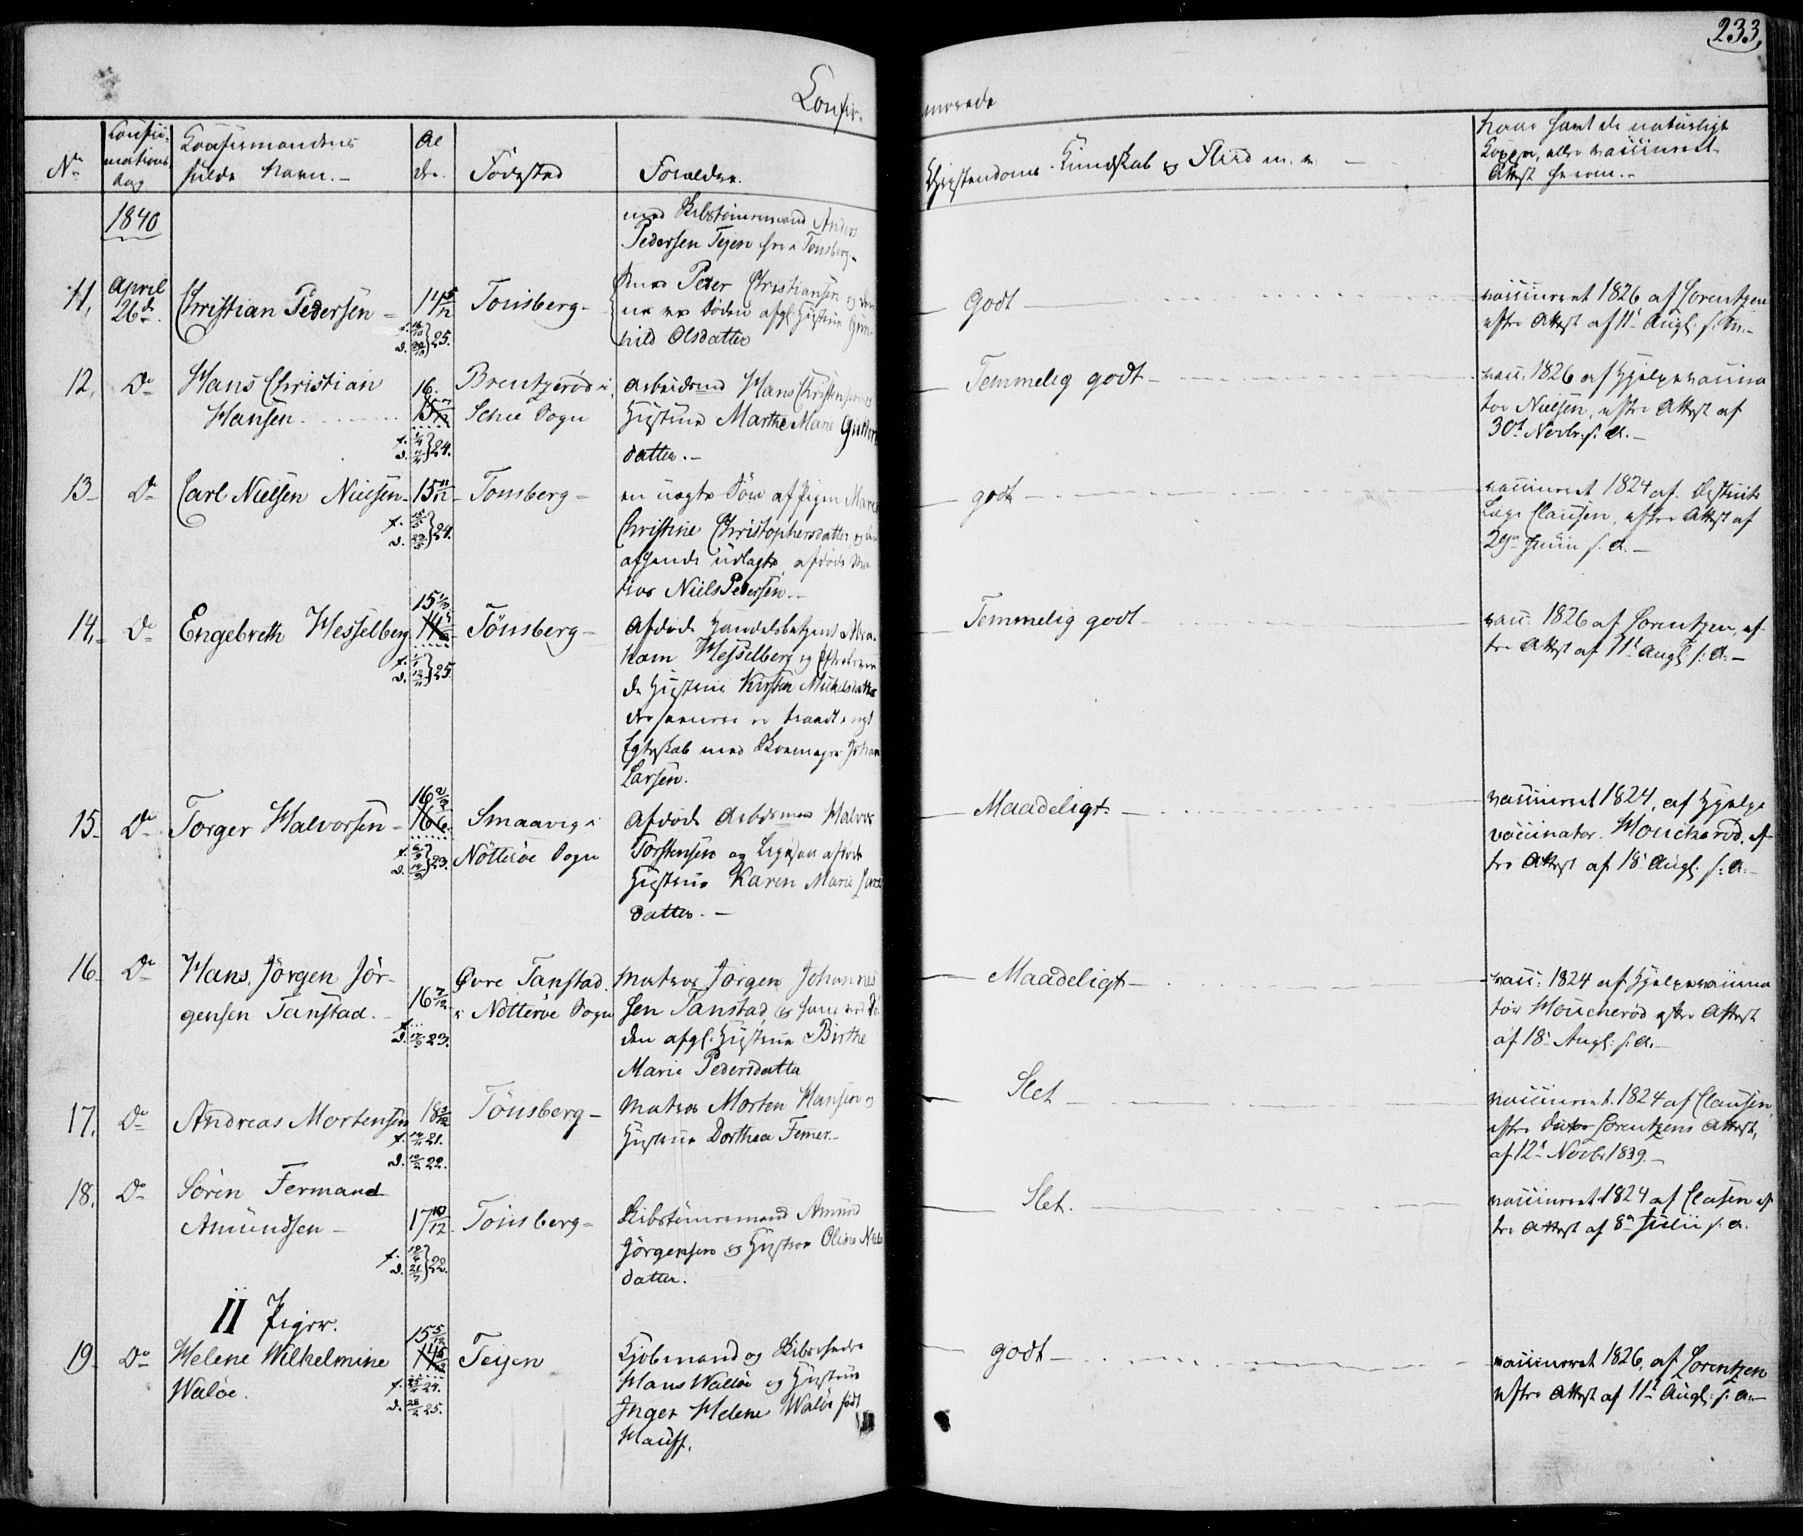 233,
Confir-
merede
No
Confir-
mations
dag
Confirmandens
fulde Navn.-
Al
der.
Fødested
Forældre.
Christendoms-Kundskab og Fliid m. v.
have havt de naturlige
Kopper, eller vaccineret
Attest herom.-
1840
med Skibstømmermand Anders
Pedersen Teyen her i Tønsberg-
11, April 26de Christian Pedersen - 14 5/12 Tønsberg-
f. d. 25.
Peter Christiansen og
ne ved Døden afg. Hustrue Gun-
hild Olsdatter
Godt
vaccineret 1826 af Lorentzen
efter Attest af 11t Augl: s. A.-
12, Do Hans Christian
Hansen.
16. 15
f. d. 24.
Brentzerød i
Schee Sogn
Arbeidsmd Hans Christensen
Hustrue Marthe Marie
datter.-
Temmelig godt-
vacc: 1826 af Hjelpevaccina
tor Nielsen, efter Attest af
30t Novbr. s. A.-
13- Do Carl Nielsen Nielsen- 15 11/12- Tønsberg-
f. d. 24.
en uægte Søn af Pigen Maren
Christine Christophersdatter og
angivende udlagte, afdøde Ma-
tros Niels Pedersen.-
godt
vaccineret 1824 af Districts
Læge Clausen, efter Attest af
29de Junii s. A.-
14,- Do Engebreth Hesselberg 15 14 Tønsberg-
f. d. 25.
Afdøde Handelsbetjent Abra-
ham Hesselberg og Efterleven
de Hustrue Kirsten Mickelsdatter
der senere er traadt i nyt
Egteskab med Skomager Johan
Larsen.
Temmelig godt
vacc: 1826 af Lorentzen, ef-
ter Attest af 11t Augl s: A.-
15- Do Torger Halvorsen- 16 2/3 16
f. d. 23.
Smaavig i
Nøtterøe Sogn
Afdøde Arbdsmand Halvor
Torstensen og Ligesaa afdøde
Hustrue Karen Marie
datter.-
Maadeligt
vaccineret 1824, af Hjelpe
vaccinator Moucherød, ef-
ter Attest af 18t Augl: s: A.-
16- Do Hans Jørgen Jør-
gensen Tanstad.
16 7/12
f. d. 23.
Øvre Tanstad
i Nøtterøe Sogn
Matros Jørgen Johannes
sen Tanstad, og hans ved Dø
den afg. Hustrue Birthe
Marie Pedersdatter
Maadeligt
vacc: 1824 af Hjelpevaccina
tor Moucherød efter Attest
af 18t Augl: s: A.-
17. Do Andreas Mortensen 18 5/12 Tønsberg-
f. 21.
d. 22.
Matros Morten Hansen og
Hustrue Dorthea Femer-
Slet
vaccineret 1824 af Clausen,
efter Doctor Lorentzens Attest,
af 12t Novbr 1839.-
18. Do Søren Fermand
Amundsen-
17 10/12 Tønsberg-
f. d. 22.
Skibstømmermand Amund
Jørgensen og Hustrue Oline Niels
datter.
Slet.
vaccineret 1824 af Clasen ef-
ter Attest af 8de Julii s. A.
II Piger.
19- Do Helene Wilhelmine
Waløe.
15 5/12 14
f. 24.
d. 25.
Teyen
Kjøbmand og Skibsrheder
Hans Waløe og Hustrue
Inger Helene Waløe født
Hauff.
godt-
vaccineret 1826, af Lorentzen
efter Attest af 11t Augl: s. A.-